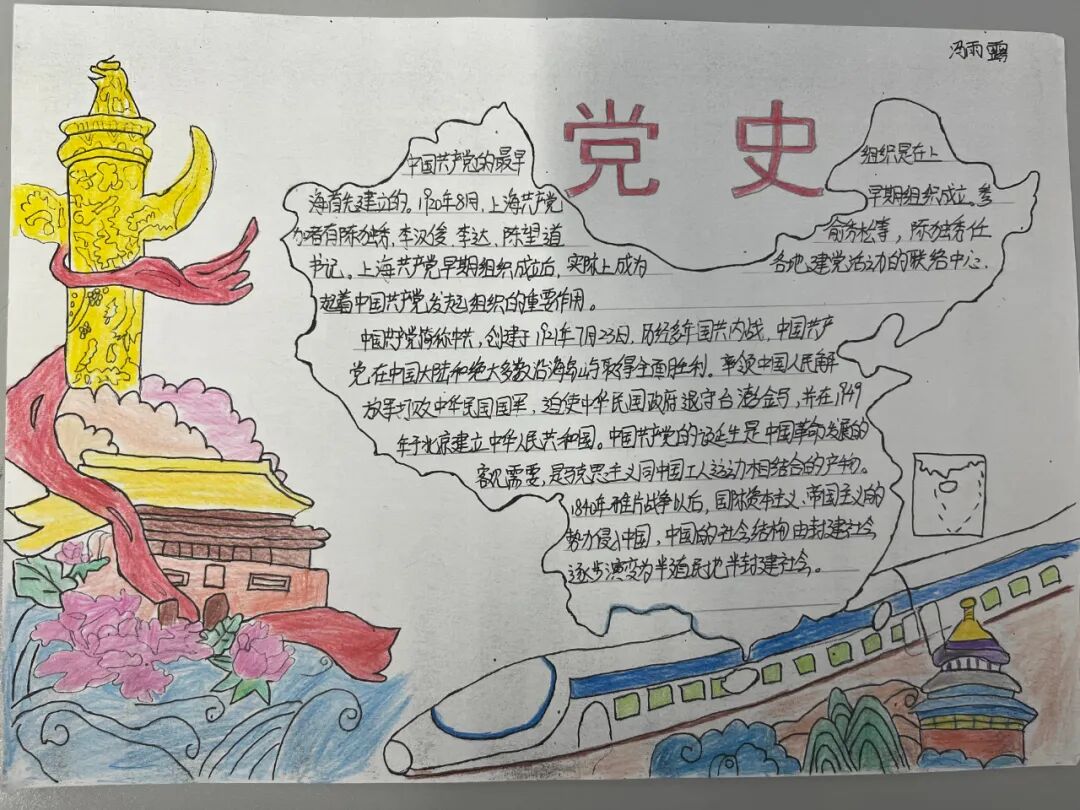 冯雨露
党史
中国共产党的最早 组织是在上
海首先建立的。1920年8月，上海共产党 早期组织成立。参
加者有陈独秀，李汉俊，李达，陈望道 俞秀松等，陈独秀任
书记。上海共产党早期组织成立后，实际上成为 各地建党活动的联络中心，
起着中国共产党发起组织的重要作用。
中国共产党简称中共，创建于1921年7月23日，历经多年国共内战，中国共产
党，在中国大陆和绝大多数沿海岛屿取得全面胜利。率领中国人民解
放军打败中华民国国军，迫使中华民国政府退守台澎金马，并在1949
年于北京建立中华人民共和国。中国共产党的诞生是中国革命发展的
客观需要，是马克思主义同中国工人运动相结合的产物。
1840年鸦片战争以后，国际资本主义、帝国主义的
势力侵入中国，中国的社会结构由封建社会
逐步演变为半殖民地半封建社会。